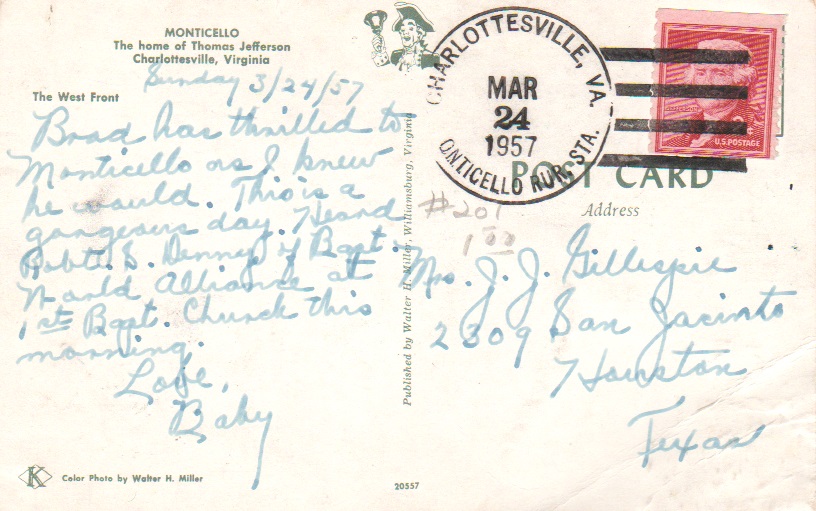 MONTICELLO
The home of Thomas Jefferson
Charlottesville, Virginia
Sunday 3/24/57
The West Front
Brad has thrilled to
Monticello as I knew
he would. This is a
gorgeous day. Heard
Robt. S. Denny of Bapt.
World Alliance at
1st Bapt. Church this
morning.
Love,
Baby
K
Color Photo by Walter H. Miller
20557
Published by Walter H. Miller, Williamsburg, Virginia
CHARLOTTESVILLE, VA.
MAR
24
1957
ONTICELLO RUR. STA.
U.S. POSTAGE
POST CARD
Address
#201
1.00
Mrs. J. J. Gillespie
2309 San Jacinto
Houston
Texas